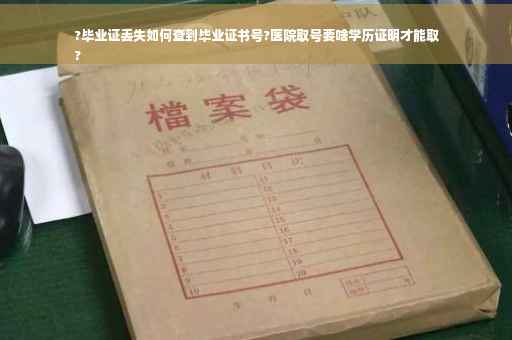 ?毕业证丢失如何查到毕业证书号?医院取号要啥学历证明才能取
?
檔案袋
材料目次
1 11
2 12
3 13
4 14
5 15
6 16
7 17
8 18
9 19
10 20
年 月 日